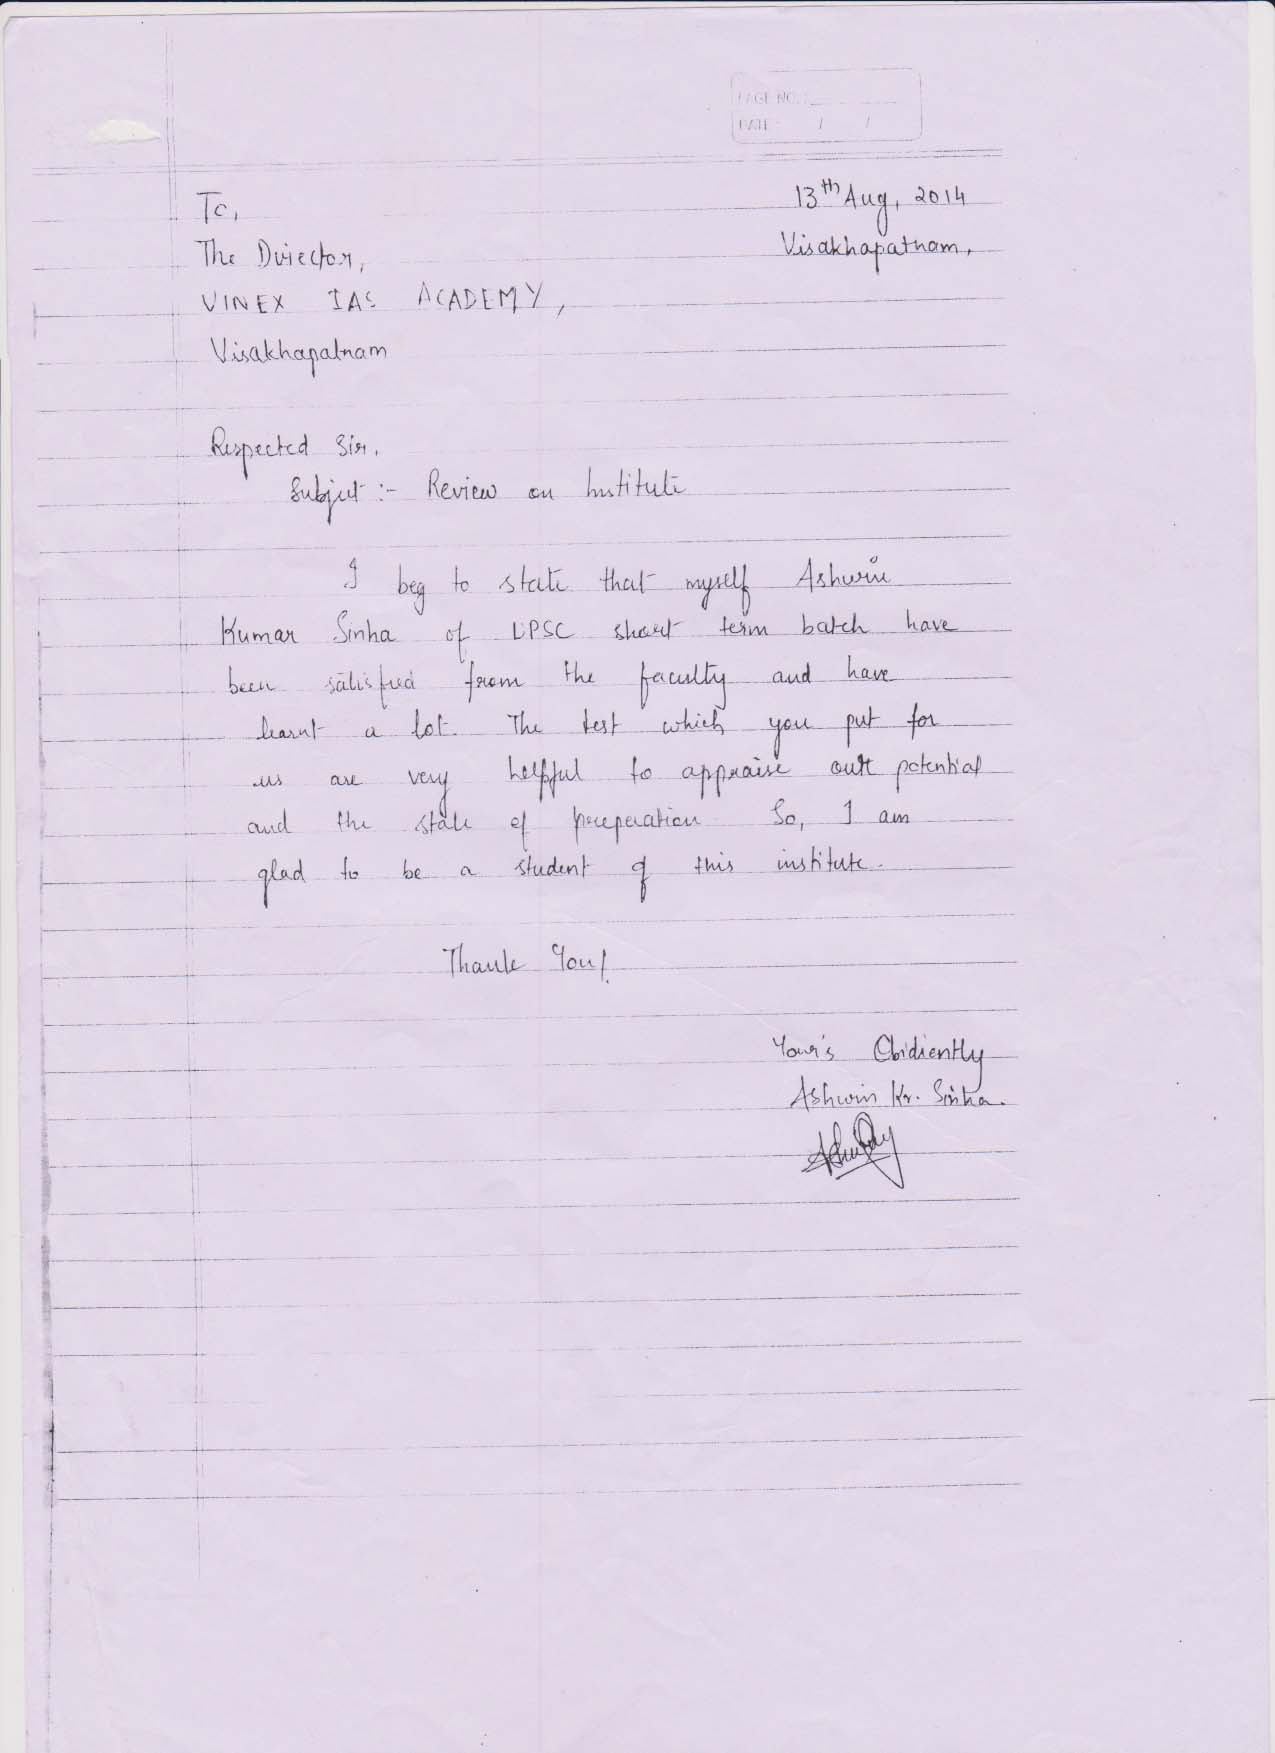 PAGE NO.:
DATE: / /
13th Aug, 2014
Visakhapatnam,
To,
The Director,
VINEX IAS ACADEMY,
Visakhapatnam
Respected Sir,
Subject :- Review on Institute
I beg to state that myself Ashwin
Kumar Sinha of UPSC short term batch have
been satisfied from the faculty and have
learnt a lot. The test which you put for
us are very helpful to appraise our potential
and the state of preperation. So, I am
glad to be a student of this institute.
Thank You!
Your's Obidiently
Ashwin Kr. Sinha.